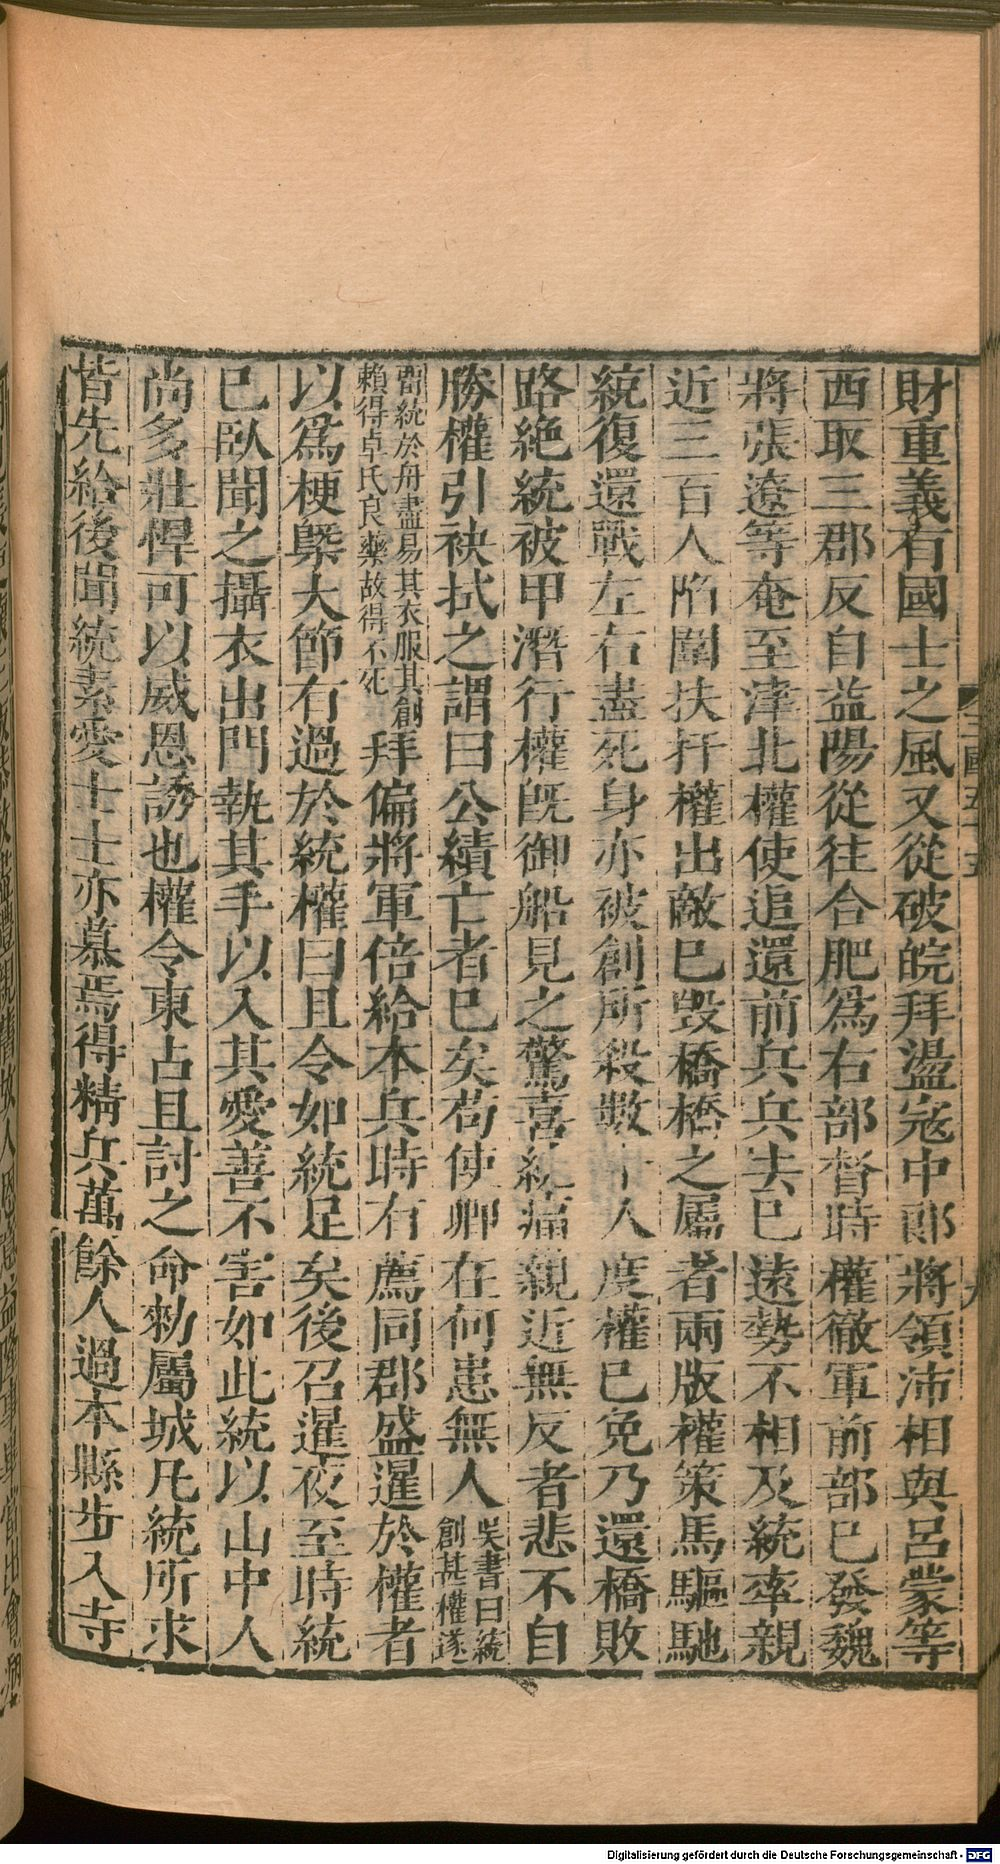 財重義有國士之風又從破皖拜盪宼中郎將領沛相與呂蒙等
西取三郡反自益陽從往合肥爲右部督時權徹軍前部已發魏
將張遼等奄至津北權使追還前兵兵去已遠勢不相及統率親
近三百人陷圍扶扞權出敵已毀橋橋之屬者兩版權策馬驅馳
統復還戰左右盡死身亦被創所殺數十人度權已免乃還橋敗
路絶統被甲潛行權旣御船見之驚喜統痛親近無反者悲不自
勝權引袂拭之謂曰公績亡者已矣苟使卿在何患無人吳書曰統創甚權遂
畱統於舟盡易其衣服其創賴得卓氏良藥故得不死拜偏將軍倍給本兵時有薦同郡盛暹於權者
以爲梗槩大節有過於統權曰且令如統足矣後召暹夜至時統
已臥聞之攝衣出門執其手以入其愛善不害如此統以山中人
尚多壯悍可以威恩誘也權令東占且討之命勑屬城凡統所求
皆先給後聞統素愛士士亦慕焉得精兵萬餘人過本縣步入寺
三國五十五
九
Digitalisierung gefördert durch die Deutsche Forschungsgemeinschaft - DFG